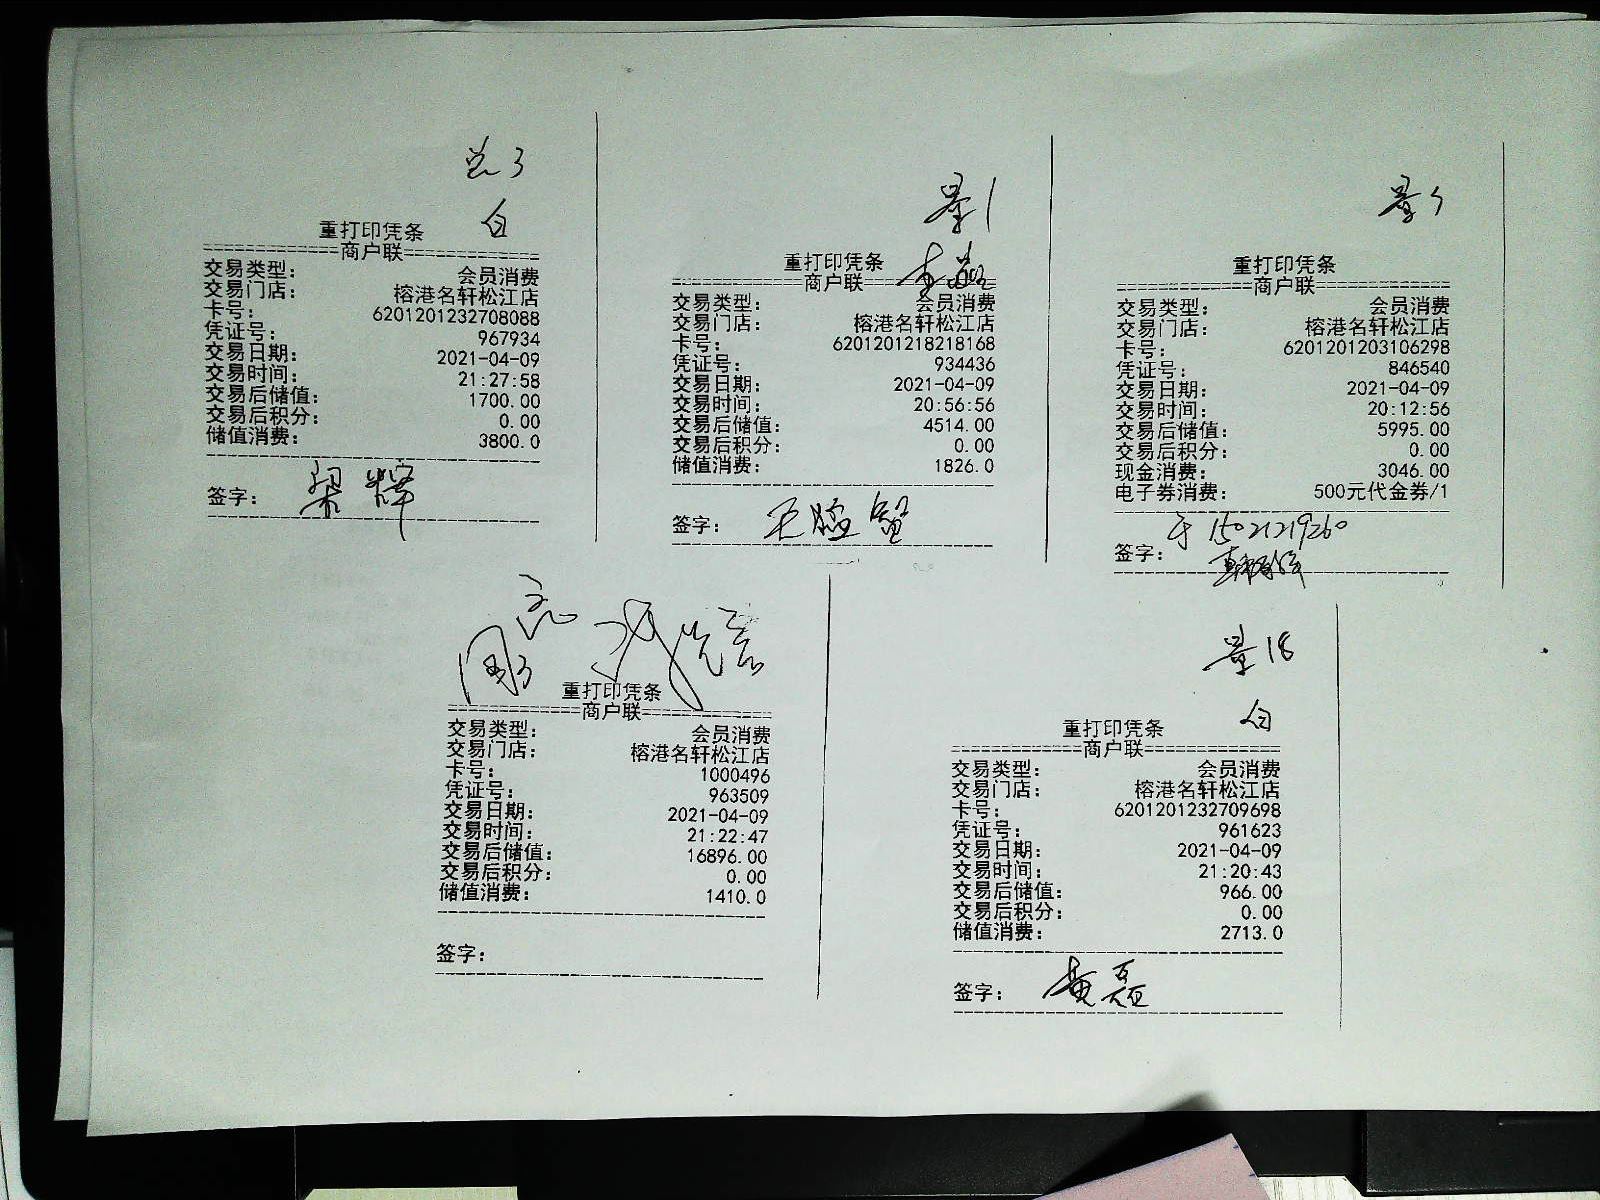 白
重打印凭条
==============商户联==============
交易类型： 会员消费
交易门店： 榕港名轩松江店
卡号： 6201201232708088
凭证号： 967934
交易日期： 2021-04-09
交易时间： 21:27:58
交易后储值： 1700.00
交易后积分： 0.00
储值消费： 3800.0
签字： 梁辉
重打印凭条
==============商户联==============
交易类型： 会员消费
交易门店： 榕港名轩松江店
卡号： 6201201218218168
凭证号： 934436
交易日期： 2021-04-09
交易时间： 20:56:56
交易后储值： 4514.00
交易后积分： 0.00
储值消费： 1826.0
签字：
重打印凭条
==============商户联==============
交易类型： 会员消费
交易门店： 榕港名轩松江店
卡号： 6201201203106298
凭证号： 846540
交易日期： 2021-04-09
交易时间： 20:12:56
交易后储值： 5995.00
交易后积分： 0.00
现金消费： 3046.00
电子券消费： 500元代金券/1
15021219260
签字：
重打印凭条
==============商户联==============
交易类型： 会员消费
交易门店： 榕港名轩松江店
卡号： 1000496
凭证号： 963509
交易日期： 2021-04-09
交易时间： 21:22:47
交易后储值： 16896.00
交易后积分： 0.00
储值消费： 1410.0
签字：
白
重打印凭条
==============商户联==============
交易类型： 会员消费
交易门店： 榕港名轩松江店
卡号： 6201201232709698
凭证号： 961623
交易日期： 2021-04-09
交易时间： 21:20:43
交易后储值： 966.00
交易后积分： 0.00
储值消费： 2713.0
签字： 黄磊